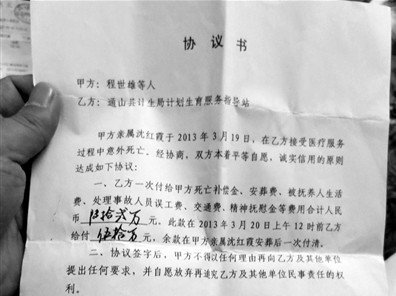 协 议 书
甲方：程世雄等人
乙方：通山县计生局计划生育服务指导站
甲方亲属沈红霞于 2013 年 3 月 19 日，在乙方接受医疗服务
过程中意外死亡、经协商，双方本着平等自愿，诚实信用的原则
达成如下协议：
一、乙方一次付给甲方死亡补偿金、安葬费、被抚养人生活
费、处理事故人员误工费、交通费、精神抚慰金等费用合计人民
币 拾贰万 元。此款在 2013 年 3 月 20 日上午 12 时前乙方
给付 伍拾万 元，余款在甲方亲属沈红霞安葬后一次付清。
二、协议签字后，甲方不得以任何理由再向乙方及其他单位
提出任何要求，并自愿放弃再追究乙方及其他单位民事责任的权
利。